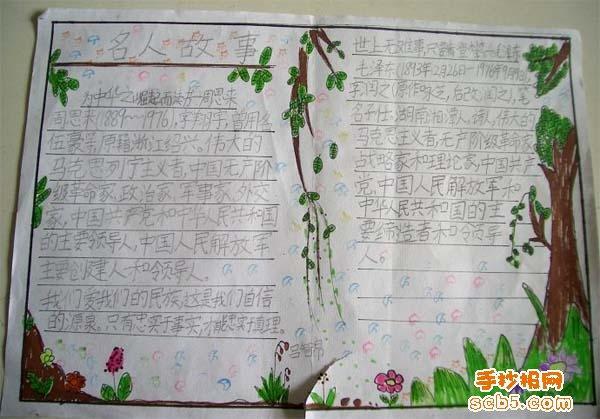 名人故事
为中华之崛起而读书 周恩来
周恩来(1889~1976),字翔宇,曾用名
伍豪等,原籍浙江绍兴。伟大的
马克思列宁主义者,中国无产阶
级革命家、政治家、军事家、外交
家,中国共产党和中华人民共和国
的主要领导人,中国人民解放军
主要创建人和领导人。
我们爱我们的民族,这是我们自信
的源泉。只有忠实于事实,才能忠实于真理。
世上无难事,只要肯登攀 毛泽东
毛泽东(1893年12月26日-1976年9月9日),
字润之(原作咏芝,后改润之),笔
名子任。湖南湘潭人。诗人,伟大的
马克思主义者,无产阶级革命家、
战略家和理论家,中国共产
党、中国人民解放军和
中华人民共和国的主
要缔造者和领导
人。
手抄报网
scb5.com